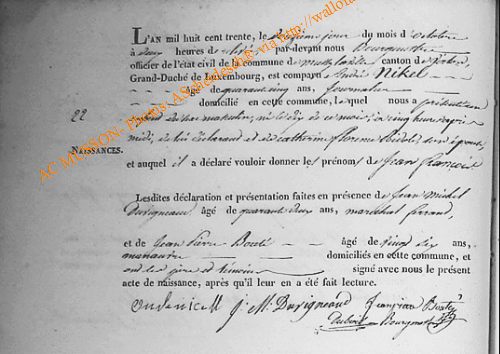 L'AN mil huit cent trente, le onzième jour du mois d'octobre
à deux heures de relevée par-devant nous Bourgmestre
officier de l'état civil de la commune de canton de
Grand-Duché de Luxembourg, est comparu André Nikel
âgé de quarante cinq ans, journalier
domicilié en cette commune, lequel nous a présenté un
22
enfant du sexe masculin, né le dix de ce mois, à cinq heures après
midi, de lui déclarant et de catherine son épouse
NAISSANCES.
et auquel il a déclaré vouloir donner les prénoms de Jean françois
Lesdites déclaration et présentation faites en présence de Jean Michel
Duvigneaud âgé de quarante deux ans, maréchal ferrant,
et de Jean Pierre âgé de vingt six ans,
manœuvre domiciliés en cette commune, et
ont les père et témoins signé avec nous le présent
acte de naissance, après qu'il leur en a été fait lecture.
J. M. Duvigneaud
Bourgmestre
AC MUSSON- Photos AScheidesing- via http://wallonia